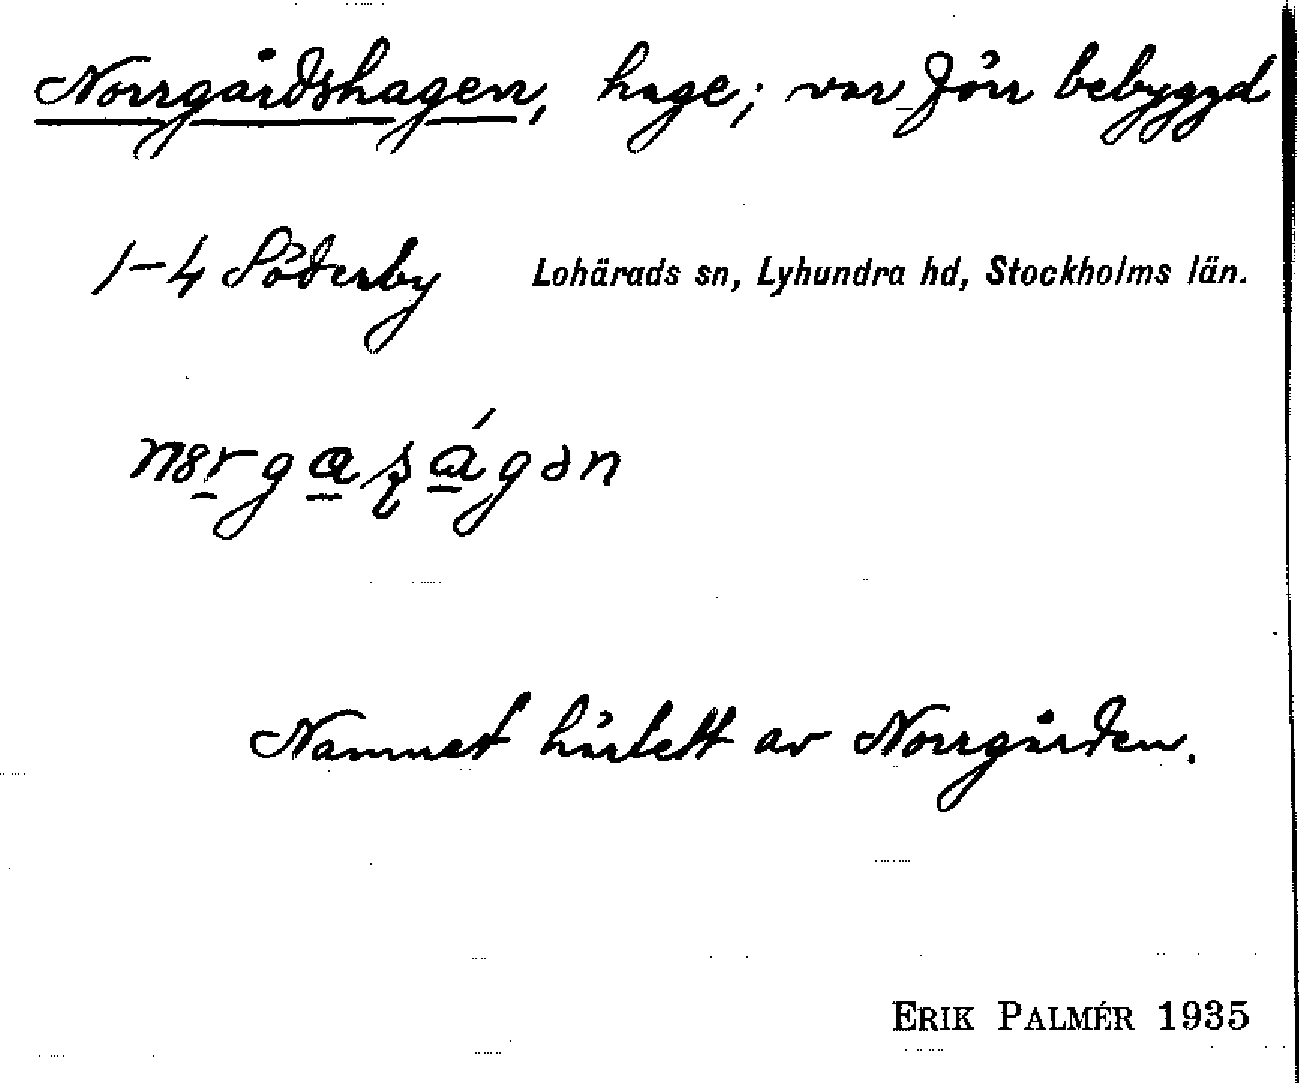 Norrgårdshagen, hage; var förr bebyggd
1-4 Söderby Lohärads sn, Lyhundra hd, Stockholms län.
Namnet härlett av Norrgården.
ERIK PALMÉR 1935